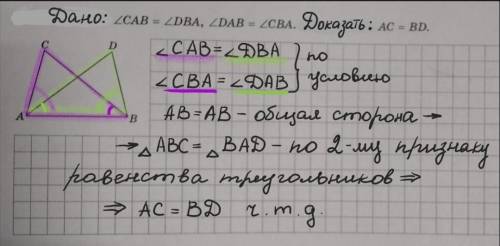 Дано: ∠CAB = ∠DBA, ∠DAB = ∠CBA. Доказать: AC = BD.
C D
A B
∠CAB=∠DBA } по
∠CBA=∠DAB } условию
AB=AB - общая сторона →
→ △ABC=△BAD - по 2-му признаку
равенства треугольников ⇒
⇒ AC=BD ч.т.д.